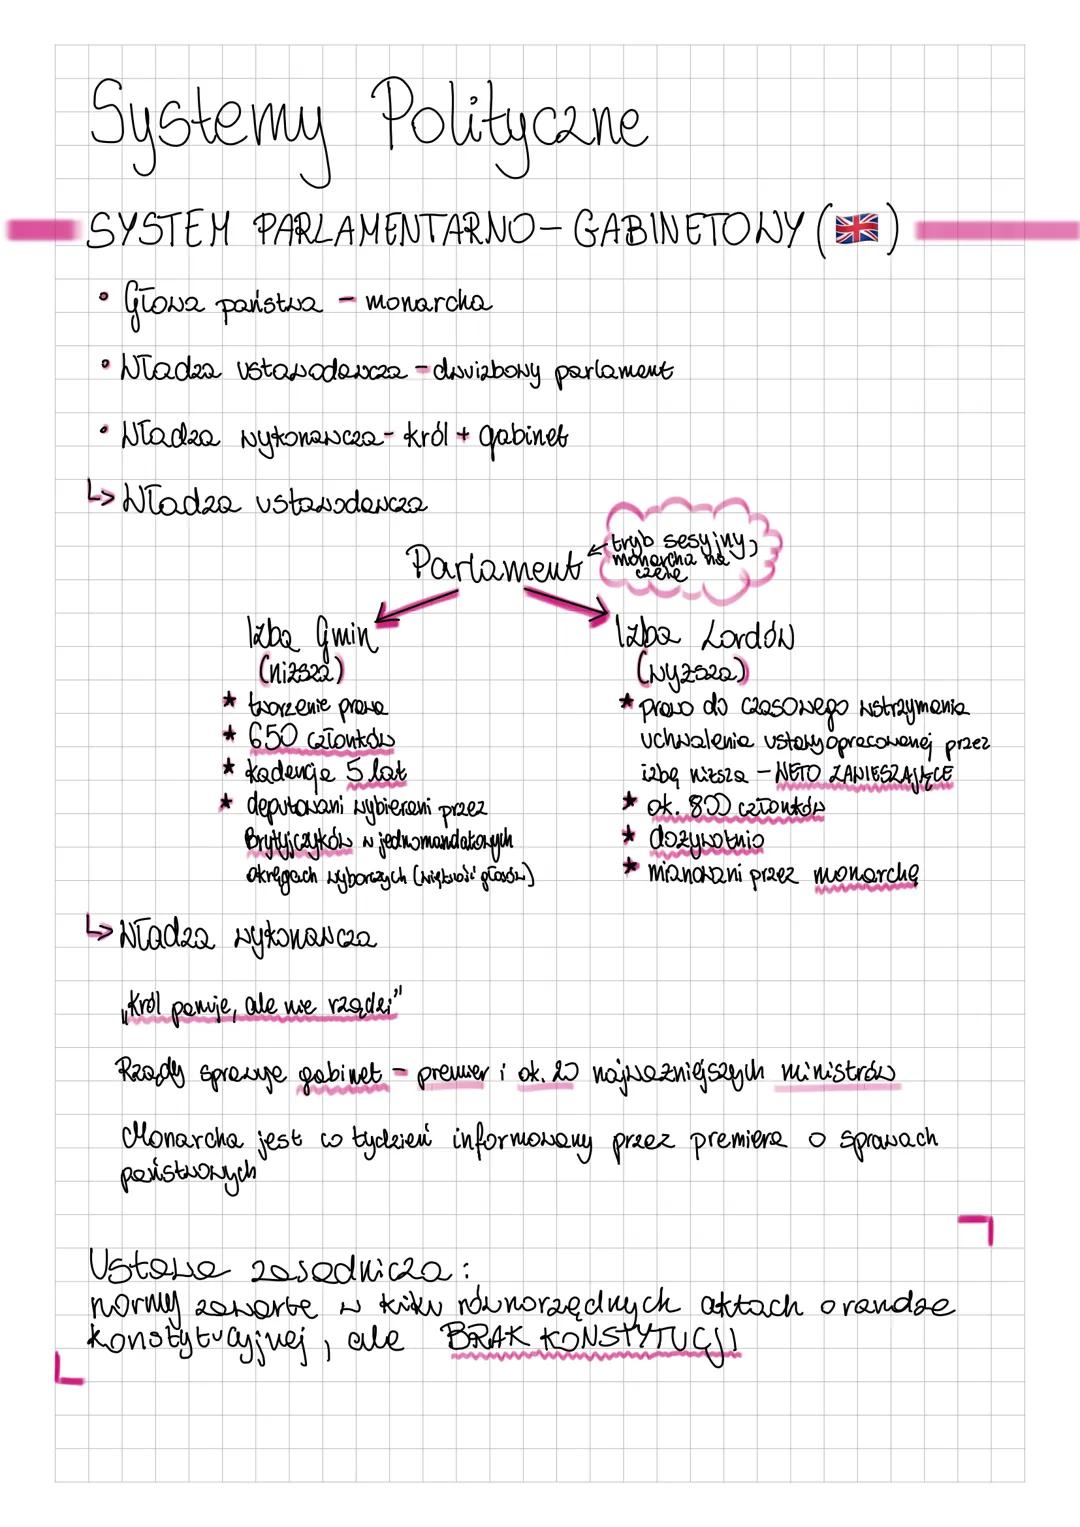 Systemy Polityczne
SYSTEM PARLAMENTARNO-GABINETOWY (🇬🇧)
• Głowa państwa - monarcha
• Władza ustawodawcza - dwuizbowy parlament
• Władza wykonawcza - król + gabinet
↳ Władza ustawodawcza
Parlament ← tryb sesyjny,
monarcha na
czele
Izba Gmin
(niższa)
★ tworzenie prawa
★ 650 członków
★ kadencja 5 lat
★ deputowani wybierani przez
Brytyjczyków w jednomandatowych
okręgach wyborczych (większość głosów)
Izba Lordów
(wyższa)
★ prawo do czasowego wstrzymania
uchwalenia ustawy opracowanej przez
izbę niższa - WETO ZAWIESZAJĄCE
★ ok. 800 członków
★ dożywotnio
★ mianowani przez monarchę
↳ Władza wykonawcza
„Król panuje, ale nie rządzi”
Rządy sprawuje gabinet - premier i ok. 20 najważniejszych ministrów
Monarcha jest co tydzień informowany przez premiera o sprawach
państwowych
Ustawa zasadnicza:
normy zawarte w kilku równorzędnych aktach o randze
konstytucyjnej, ale BRAK KONSTYTUCJI